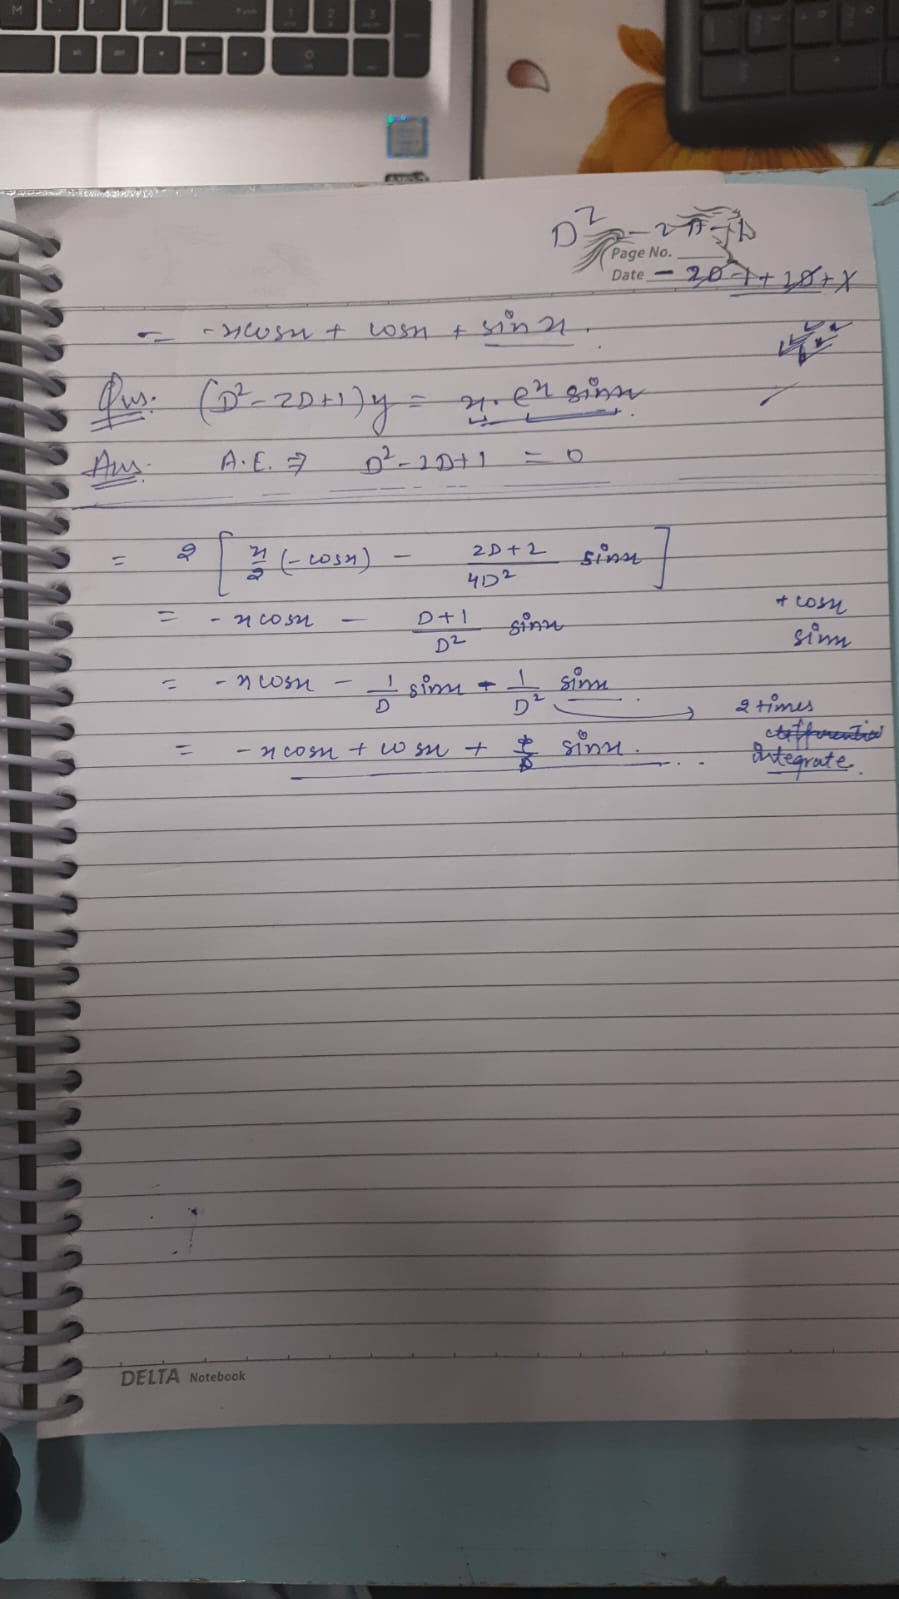 D² - 2
Page No.
Date - 2D - 1 + 2D + X
= -xcosx + cosx + sinx.
Qus. (D² - 2D + 1)y = x. eˣ sinx
Ans. A.E. ⇒ D² - 2D + 1 = 0
= 2 [ x/2 (-cosx) - 2D+2/4D² sinx ]
= -xcosx - D+1/D² sinx + cosx
sinx
= -xcosx - 1/D sinx - 1/D² sinx. → 2 times
integrate
= -xcosx + cosx + sinx.
DELTA Notebook